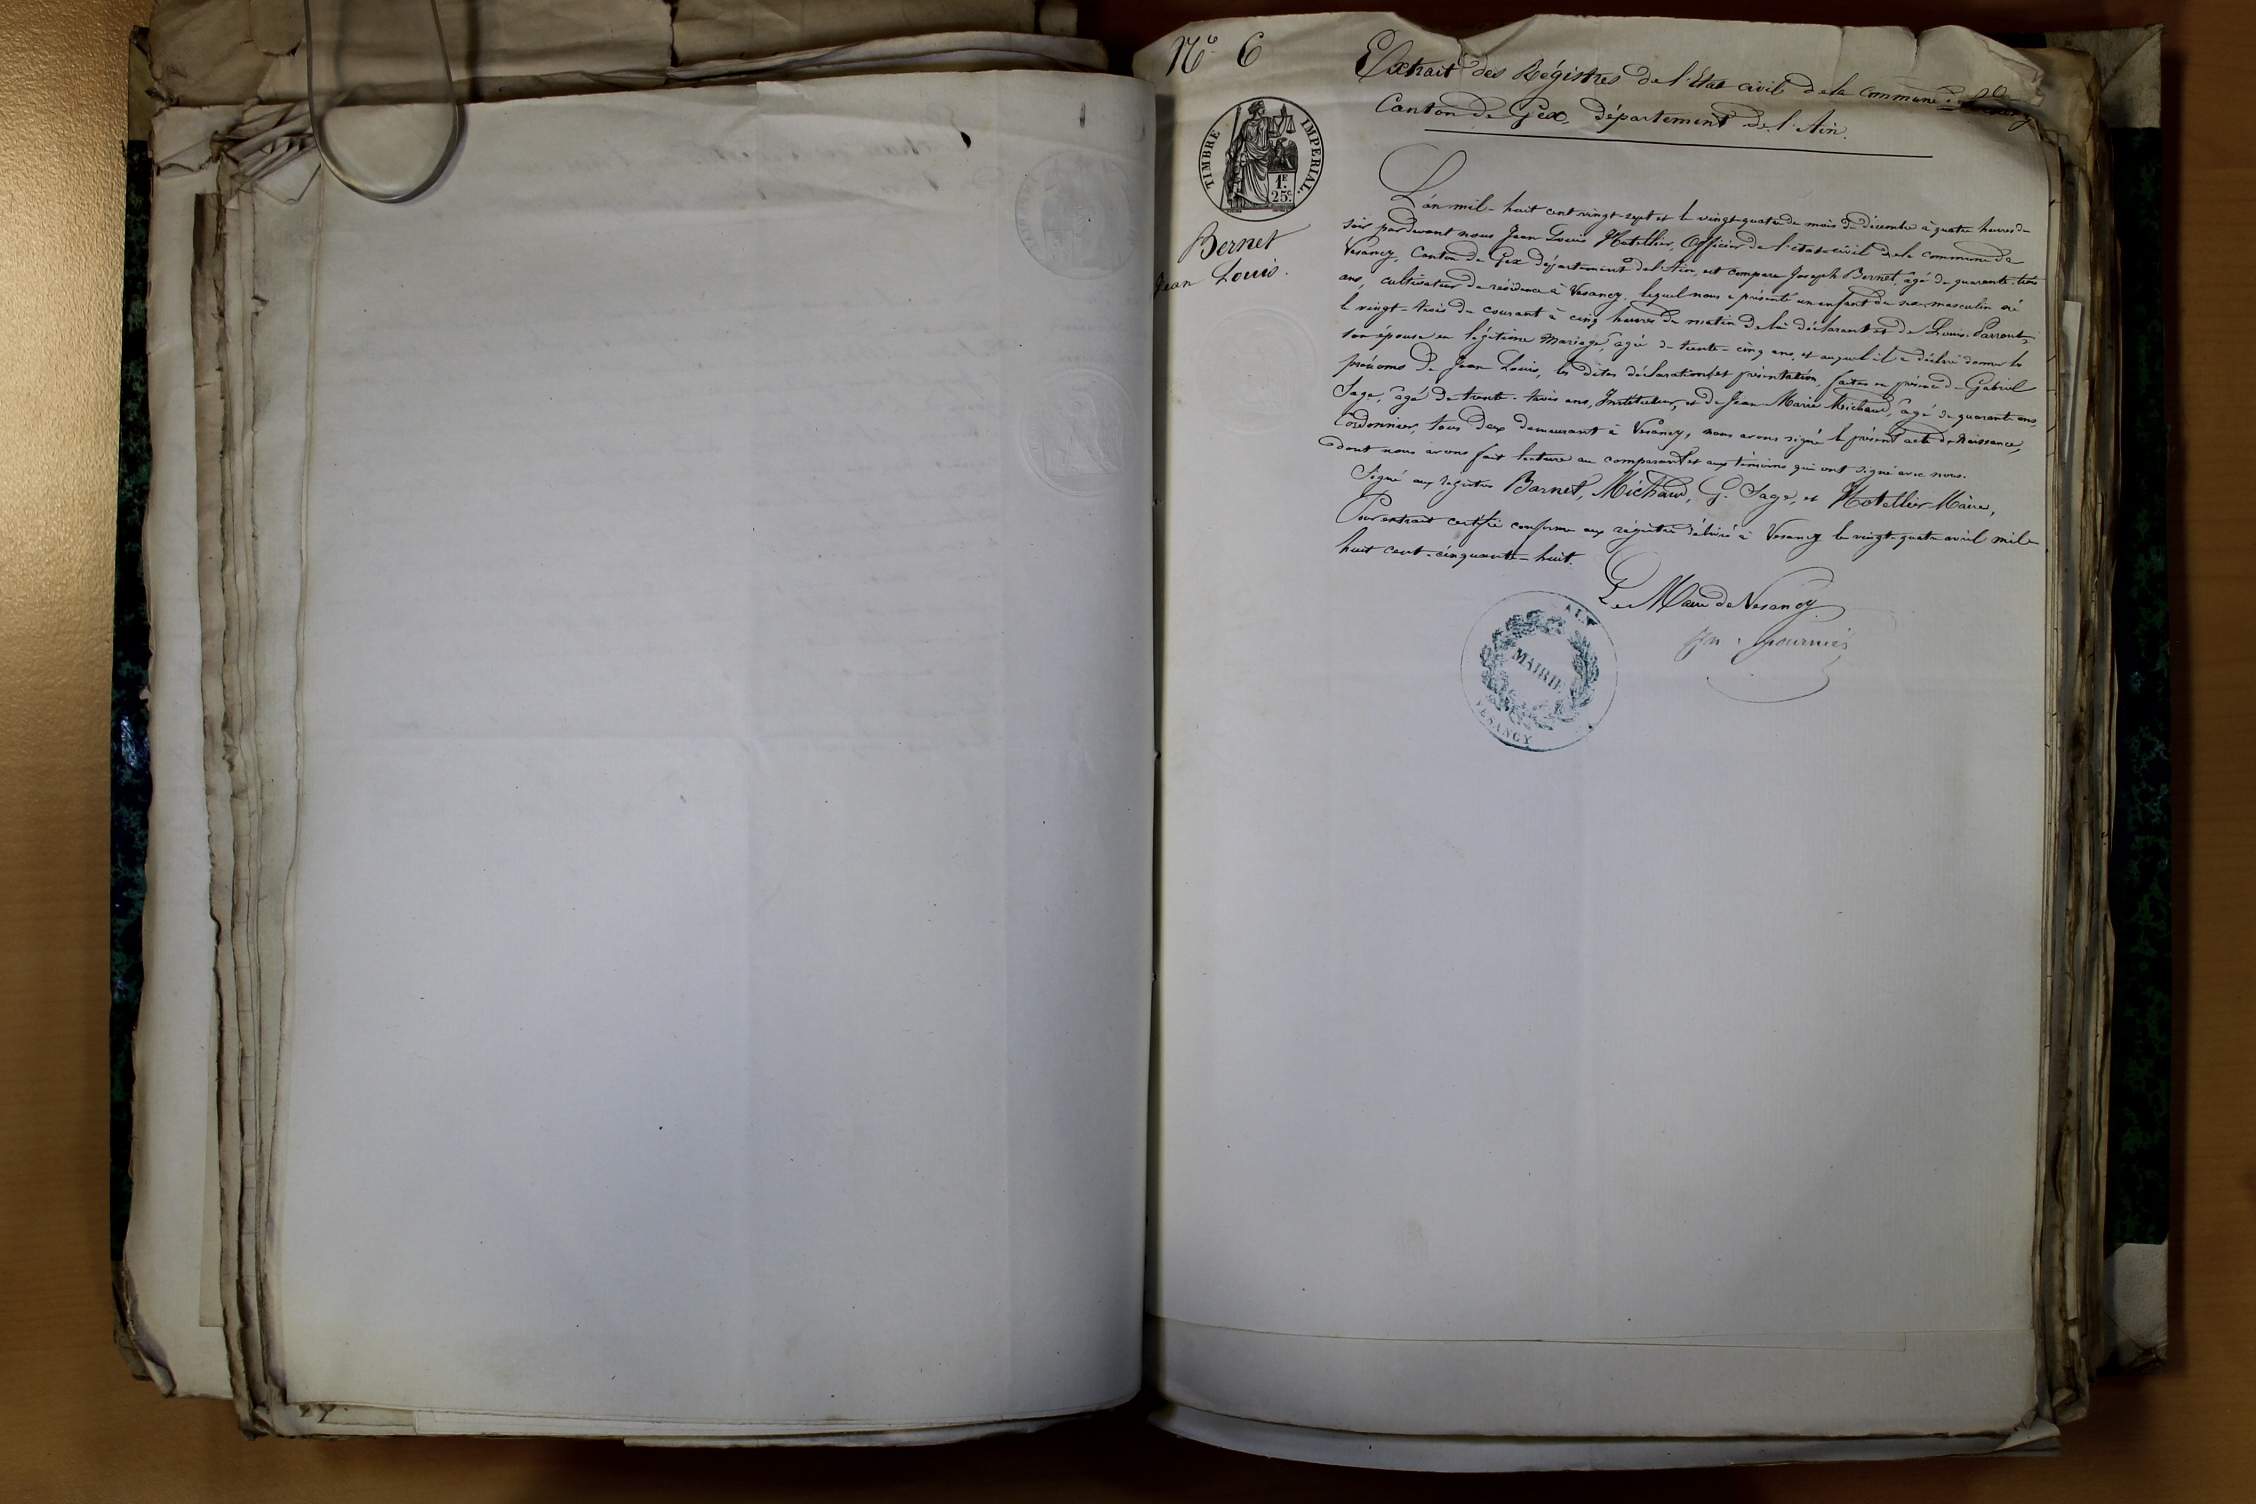 N° 6
Extrait des Régistres de l'Etat civil de la commune de Vesancy
Canton de Gex, département de l'Ain.
TIMBRE IMPERIAL
1F.
25c.
Bernet
Jean Louis.
L'an mil-huit cent vingt-sept et le vingt-quatre du mois de décembre à quatre heures du
soir pardevant nous Jean Louis Hotellier, Officier de l'état-civil de la commune de
Vesancy, Canton de Gex département de l'Ain, est comparu Joseph Bernet, agé de quarante-trois
ans, cultivateur de résidence à Vesancy, lequel nous a présenté un enfant du sexe masculin né
le vingt-trois du courant à cinq heures du matin de lui déclarant et de Louise
son épouse en légitime Mariage, agée de trente-cinq ans, et auquel il a déclaré donner les
prénoms de Jean Louis, les dites déclaration et présentation faites en présence de Gabriel
Sage, agé de trente-trois ans, Instituteur, et de Jean-Marie Michaud, agé de quarante ans,
Cordonnier, tous deux demeurant à Vesancy, nous avons signé le présent acte de Naissance,
dont nous avons fait lecture au comparant et aux témoins qui ont signé avec nous.
Signé aux registres Barnet, Michaud, G. Sage, et Hotellier Maire,
Pour extrait certifié conforme aux régistres délivré à Vesancy le vingt-quatre avril mil
huit cent-cinquante-huit.
Le Maire de Vesancy
Fournier
AIN
MAIRIE
VESANCY